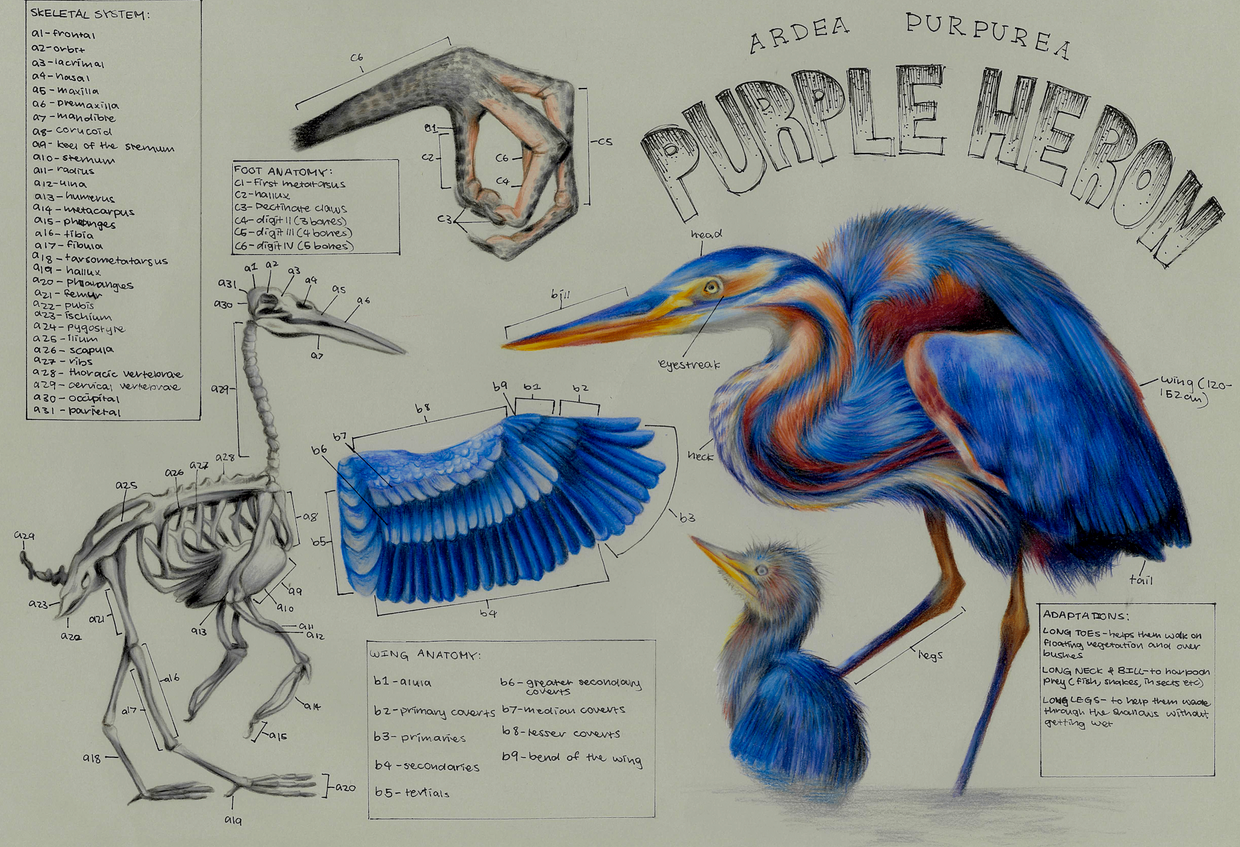 SKELETAL SYSTEM:
a1-frontal
a2-orbit
a3-lacrimal
a4-nasal
a5-maxilla
a6-premaxilla
a7-mandible
a8-corucoid
a9-keel of the sternum
a10-sternum
a11-radius
a12-ulna
a13-humerus
a14-metacarpus
a15-phalanges
a16-tibia
a17-fibula
a18-tarsometatarsus
a19-hallux
a20-phalanges
a21-femur
a22-pubis
a23-ischium
a24-pygostyle
a25-ilium
a26-scapula
a27-ribs
a28-thoracic vertebrae
a29-cervical vertebrae
a30-occipital
a31-parietal
C6
C2
C6
C4
C3
C5
FOOT ANATOMY:
C1-First metatarsus
C2-hallux
C3-Pectinate claws
C4-digit II (3 bones)
C5-digit III (4 bones)
C6-digit IV (5 bones)
ARDEA PURPUREA
PURPLE HERON
head
bill
eyestreak
neck
wing (120-
152cm)
tail
legs
a31
a1
a2
a3
a4
a5
a6
a30
a7
a29
a28
a27
a26
a25
a8
a29
a23
a22
a21
a9
a10
a11
a12
a13
a16
a17
a14
a15
a18
a19
a20
b9
b1
b2
b8
b7
b6
b5
b3
b4
WING ANATOMY:
b1-alula
b2-primary coverts
b3-primaries
b4-secondaries
b5-tertials
b6-greater secondary
coverts
b7-median coverts
b8-lesser coverts
b9-bend of the wing
ADAPTATIONS:
LONG TOES-helps them walk on
floating vegetation and over
bushes
LONG NECK & BILL-to harpoon
prey (fish, snakes, insects etc)
LONG LEGS- to help them wade
through the shallows without
getting wet